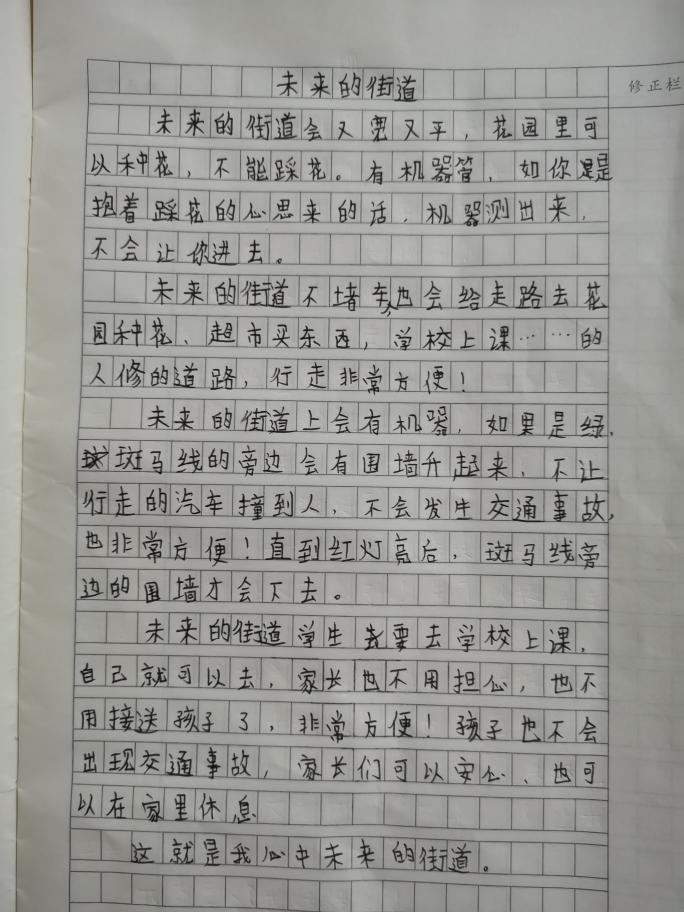 修正栏
未来的街道
未来的街道会又宽又平，花园里可
以种花，不能踩花。有机器管，如你是是
抱着踩花的心思来的话，机器测出来，
不会让你进去。
未来的街道不堵车，也会给走路去花
园种花、超市买东西，学校上课……的
人修的道路，行走非常方便！
未来的街道上会有机器，如果是绿，
斑马线的旁边会有围墙升起来，不让
行走的汽车撞到人，不会发生交通事故，
也非常方便！直到红灯亮后，斑马线旁
边的围墙才会下去。
未来的街道学生要去学校上课，
自己就可以去，家长也不用担心，也不
用接送孩子了，非常方便！孩子也不会
出现交通事故，家长们可以安心、也可
以在家里休息
这就是我心中未来的街道。